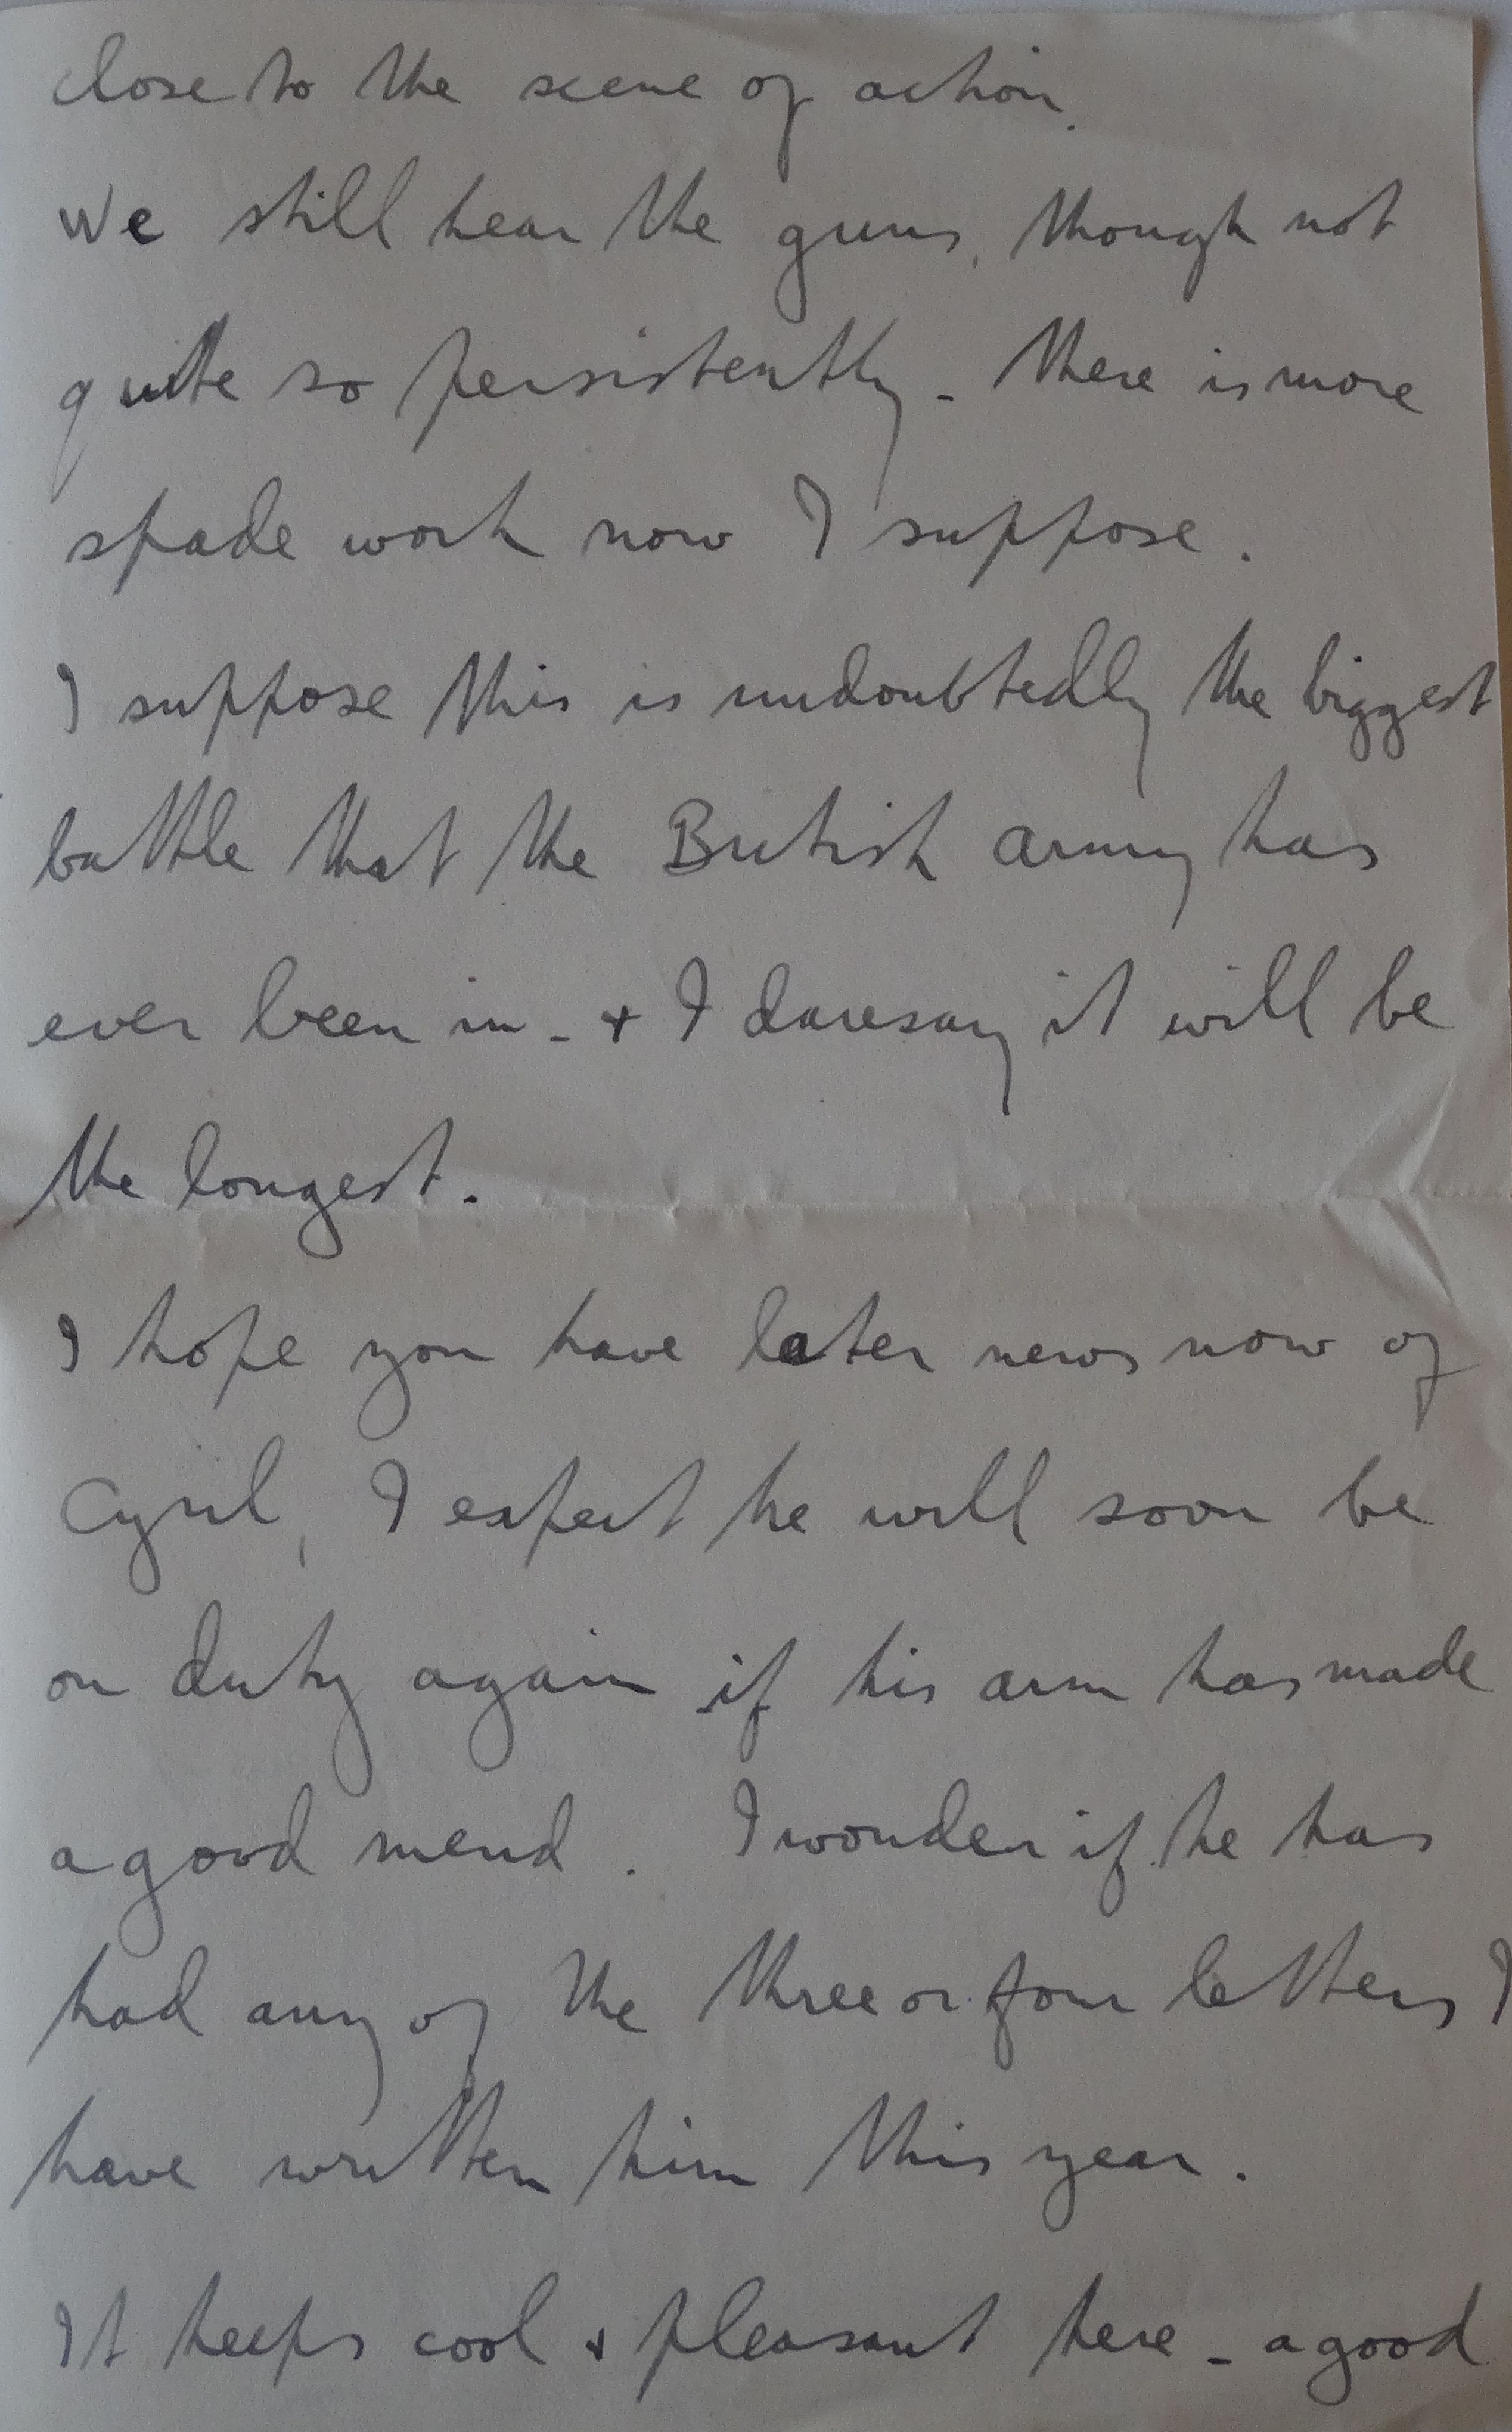 close to the scene of action.
We still hear the guns, though not
quite so persistently - there is more
spade work now I suppose.
I suppose this is undoubtedly the biggest
battle that the British army has
ever been in - + I daresay it will be
the longest.
I hope you have later news now of
Cyril, I expect he will soon be
on duty again if his arm has made
a good mend. I wonder if he has
had any of the three or four letters I
have written him this year.
It keeps cool + pleasant here - a good